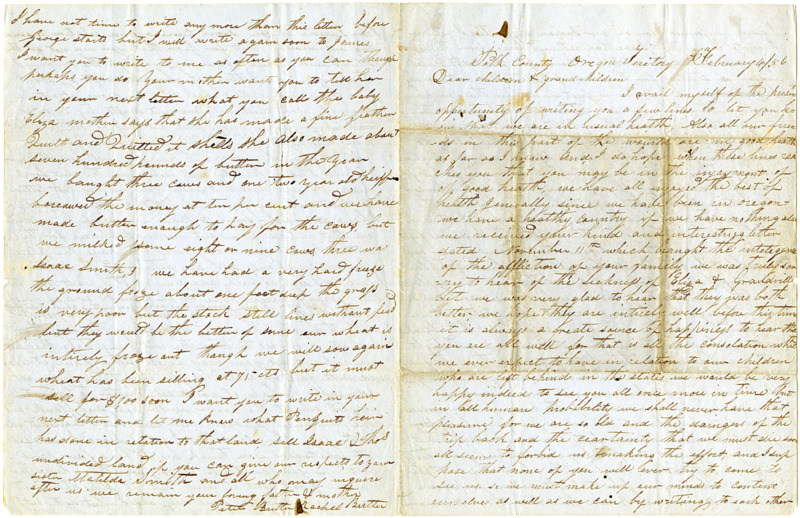 I have not time to write any more than this letter before
George starts but I will write again soon to James
I want you to write to me as often as you can though
perhaps you do Your mother want you to tell her
in your next letter what you call the baby
Eliza mother says that she has made a fine feather
Quilt and Quilted it she also made about
seven hundred pounds of butter in the year
we baught three cows and one two year old heiffer
borrowed the money at ten per cent and we have
made butter enough to pay for the cows but
we milked some eight or nine cows three was
Isaac Smiths we have had a very hard freeze
the ground froze about one foot deep the grass
is very poor but the stock still lives without feed
but they would be the better of some our wheat is
intirely froze out though we will sow again
wheat has been silling at 75 cts but it must
sell for $1.00 soon I want you to write in your
next letter and let me know what heirs
has done in relation to that land sell Isaac &
undivided land if you can give our respects to your
sister Matilda Smith and all who may inquire
after us we remain your loving father & mother
Peter Butler Rachel Butler
Polk County Oregon Teritory February 4/56
Dear children & grandchildren
I avail myself of the present
opportunity of writing you a few lines to let you kn
ow that we are in usual health. Also all our frien
ds in this part of the world are in good health
as far as I know. And I do hope when these lines rea
ches you that you may be in the injoyment of
of good health, we have all injoyed the best of
health Generally since we have been in oregon
we have a healthy country if we have nothing else
we received your kind and interesting letter
dated November 11th which braught the inteligence
of the affliction of your family we was truly sor
ry to hear of the sickness of Eliza &
but we was very glad to hear that they was both
better we hope they are intirely well before this time
it is always a greate source of happiness to hear that
you are all well for that is all the consolation which
we ever expect to have in relation to our children
who are left behind in the states we would be very
happy indeed to see you all once more in time but
in all human probibility we shall never have that
pleasure for we are so old and the dangers of the
trip back and the ceartainty that we must die soon
all seems to forbid us making the effort and I sup
pose that none of you will ever try to come to
see us so we must make up our minds to content
ourselves as well as we can by writing to each other